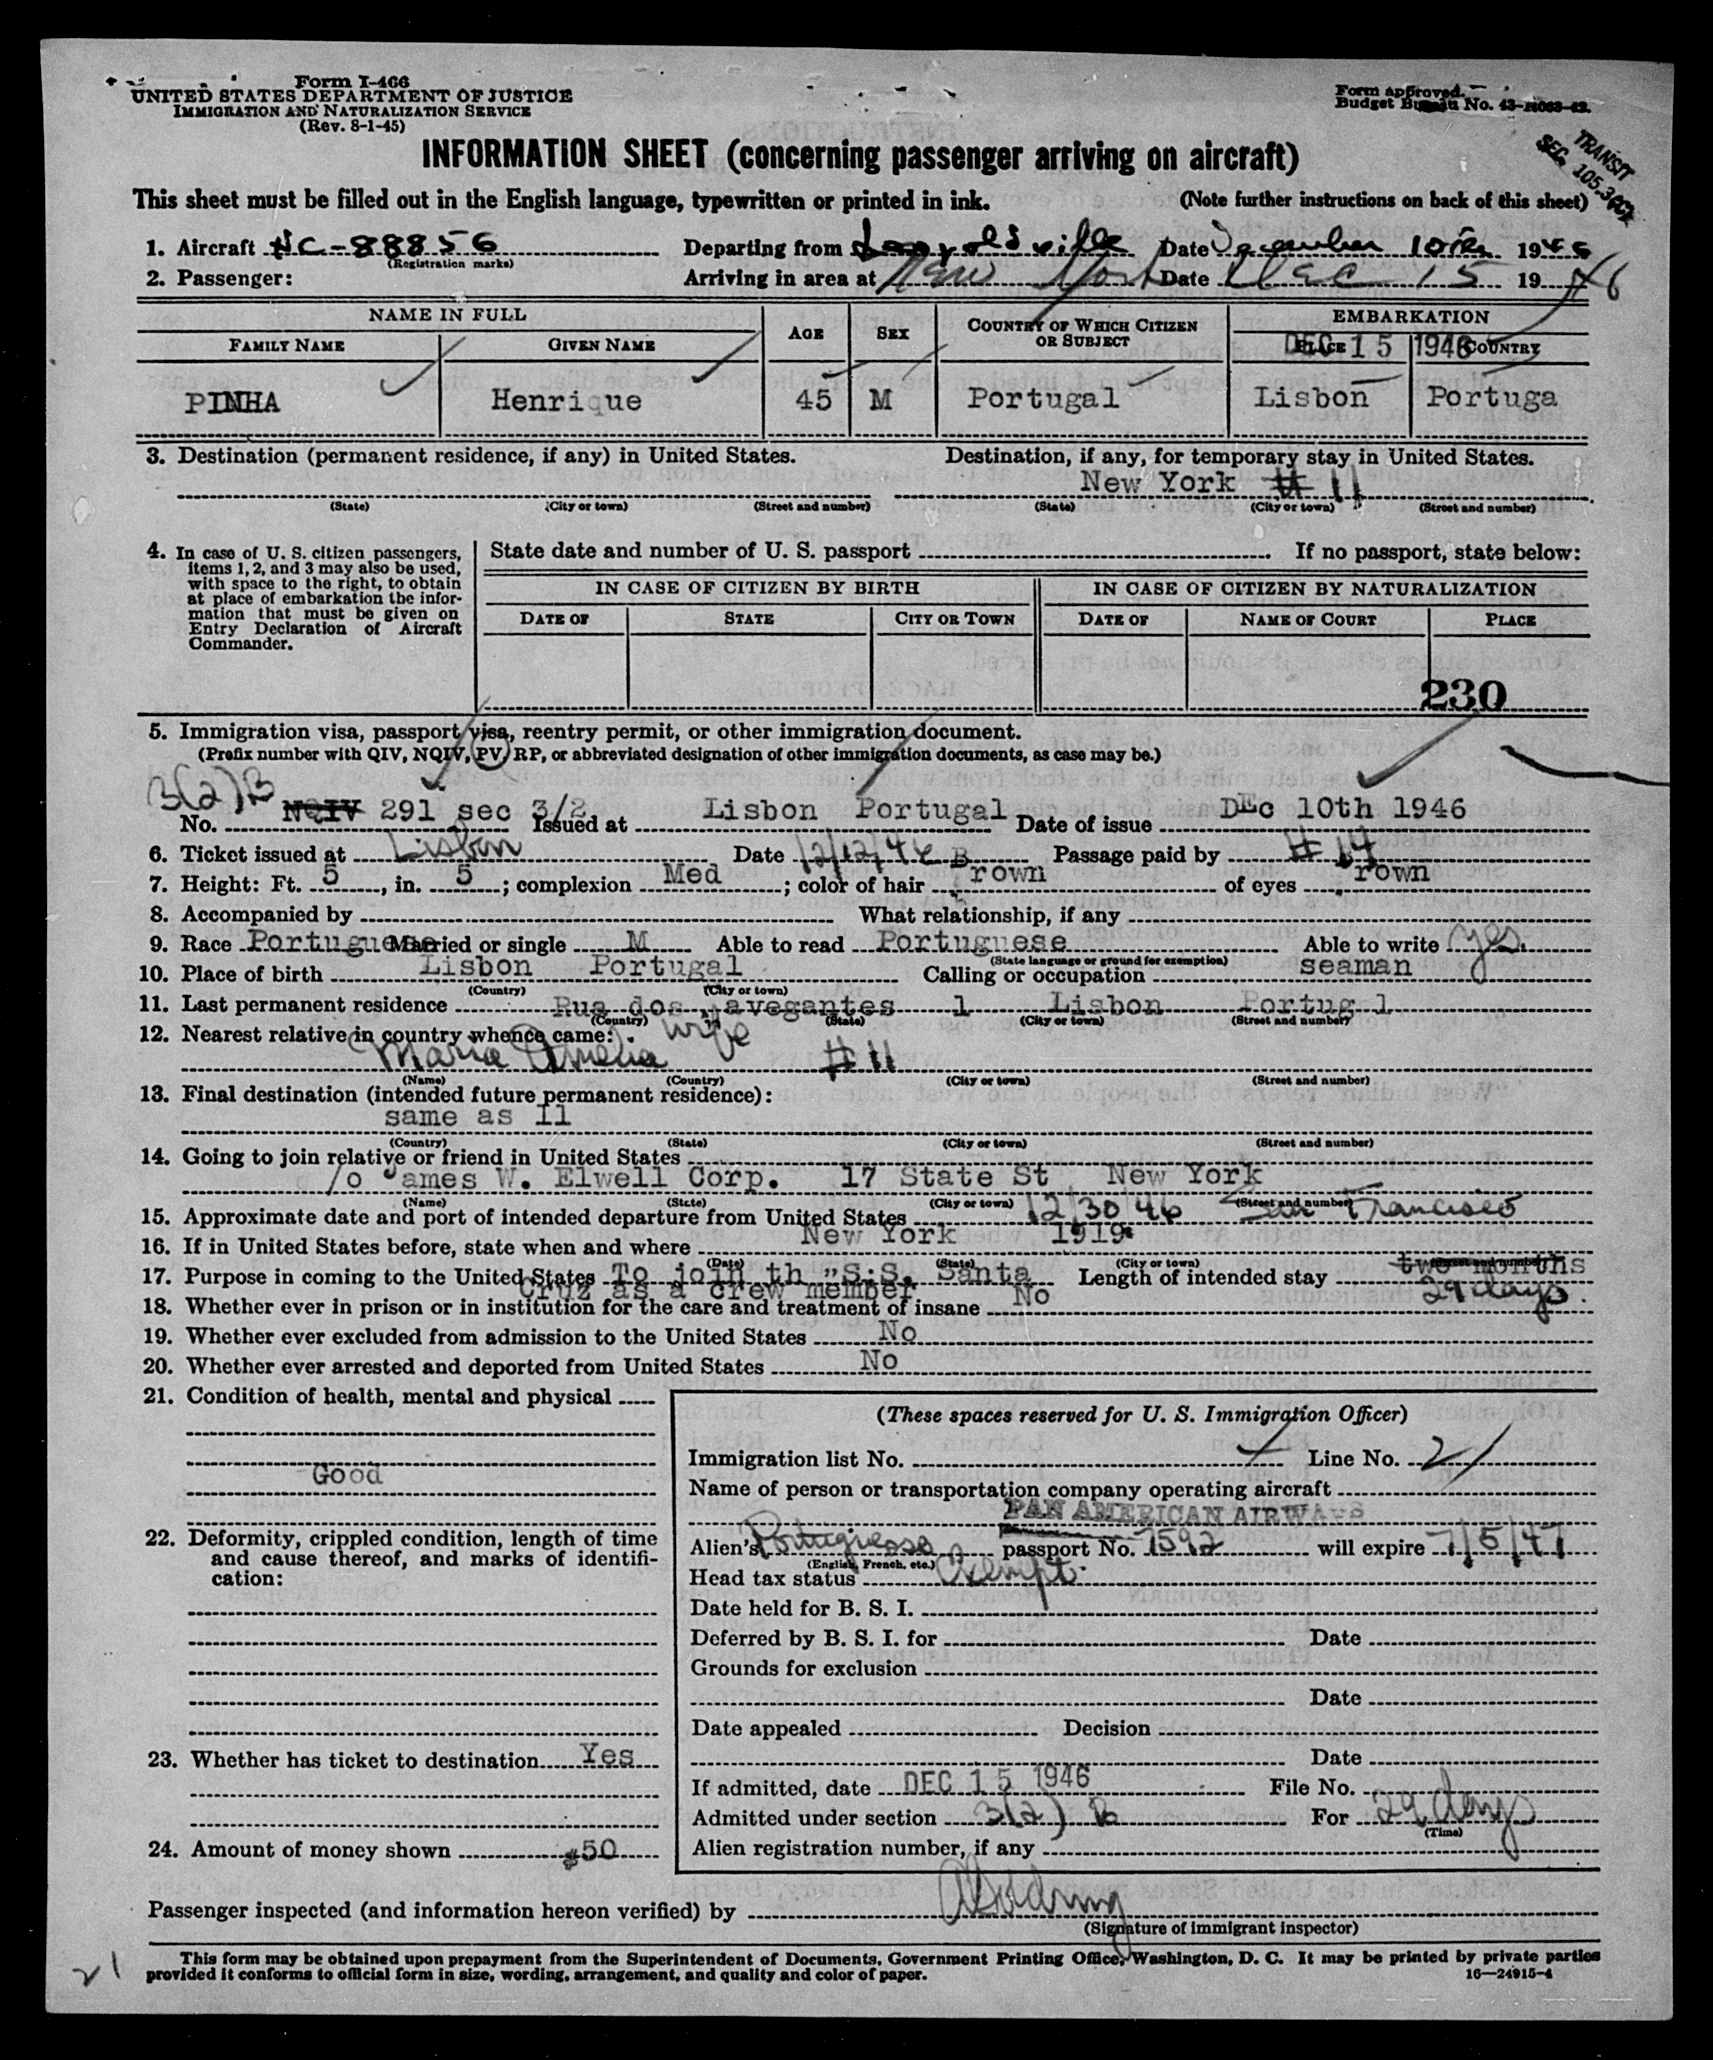 Form I-466
UNITED STATES DEPARTMENT OF JUSTICE
IMMIGRATION AND NATURALIZATION SERVICE
(Rev. 8-1-45)
Form approved.
Budget Bureau No. 43-
TRANSIT
SEC. 105.3
INFORMATION SHEET (concerning passenger arriving on aircraft)
This sheet must be filled out in the English language, typewritten or printed in ink. (Note further instructions on back of this sheet)
1. Aircraft NC-88856 Departing from Leopoldville Date December 10th 1946
(Registration marks)
2. Passenger: Arriving in area at New York Date Dec 15 1946
NAME IN FULL AGE SEX COUNTRY OF WHICH CITIZEN OR SUBJECT EMBARKATION
FAMILY NAME GIVEN NAME PLACE COUNTRY
DEC 15 1946
PINHA Henrique 45 M Portugal Lisbon Portuga
3. Destination (permanent residence, if any) in United States. Destination, if any, for temporary stay in United States.
New York # 11
(State) (City or town) (Street and number) (State) (City or town) (Street and number)
4. In case of U. S. citizen passengers, items 1, 2, and 3 may also be used, with space to the right, to obtain at place of embarkation the information that must be given on Entry Declaration of Aircraft Commander.
State date and number of U. S. passport If no passport, state below:
IN CASE OF CITIZEN BY BIRTH IN CASE OF CITIZEN BY NATURALIZATION
DATE OF STATE CITY OR TOWN DATE OF NAME OF COURT PLACE
230
5. Immigration visa, passport visa, reentry permit, or other immigration document.
(Prefix number with QIV, NQIV, PV, RP, or abbreviated designation of other immigration documents, as case may be.)
3(2)B
No. NQIV 291 sec 3/2 Issued at Lisbon Portugal Date of issue DEc 10th 1946
6. Ticket issued at Lisbon Date 12/12/46 Passage paid by # 14
7. Height: Ft. 5, in. 5; complexion Med; color of hair Brown of eyes rown
8. Accompanied by What relationship, if any
9. Race Portuguese Married or single M Able to read Portuguese Able to write yes.
(State language or ground for exemption)
10. Place of birth Lisbon Portugal Calling or occupation seaman
(Country) (City or town)
11. Last permanent residence Rua dos avegantes 1 Lisbon Portug l
(Country) (State) (City or town) (Street and number)
12. Nearest relative in country whence came: wife
Maria Amelia # 11
(Name) (Country) (City or town) (Street and number)
13. Final destination (intended future permanent residence):
same as 11
(Country) (State) (City or town) (Street and number)
14. Going to join relative or friend in United States
/o James W. Elwell Corp. 17 State St New York
(Name) (State) (City or town) (Street and number)
15. Approximate date and port of intended departure from United States 12/30/46 San Francisco
16. If in United States before, state when and where New York 1919
(Date) (State) (City or town) (Street and number)
17. Purpose in coming to the United States To join th "S.S. Santa Length of intended stay two months
Cruz as a crew member 29 days.
18. Whether ever in prison or in institution for the care and treatment of insane No
19. Whether ever excluded from admission to the United States No
20. Whether ever arrested and deported from United States No
21. Condition of health, mental and physical
Good
22. Deformity, crippled condition, length of time and cause thereof, and marks of identification:
23. Whether has ticket to destination Yes
24. Amount of money shown $50
(These spaces reserved for U. S. Immigration Officer)
Immigration list No. Line No. 21
Name of person or transportation company operating aircraft
PAN AMERICAN AIRWAYS
Alien's Portuguese passport No. 7592 will expire 7/5/47
(English, French, etc.)
Head tax status Exempt.
Date held for B. S. I.
Deferred by B. S. I. for Date
Grounds for exclusion
Date
Date appealed Decision
Date
If admitted, date DEC 15 1946 File No.
Admitted under section 3(2) B For 29 days
(Time)
Alien registration number, if any
Passenger inspected (and information hereon verified) by
(Signature of immigrant inspector)
This form may be obtained upon prepayment from the Superintendent of Documents, Government Printing Office, Washington, D. C. It may be printed by private parties
provided it conforms to official form in size, wording, arrangement, and quality and color of paper. 16—24915-4
21